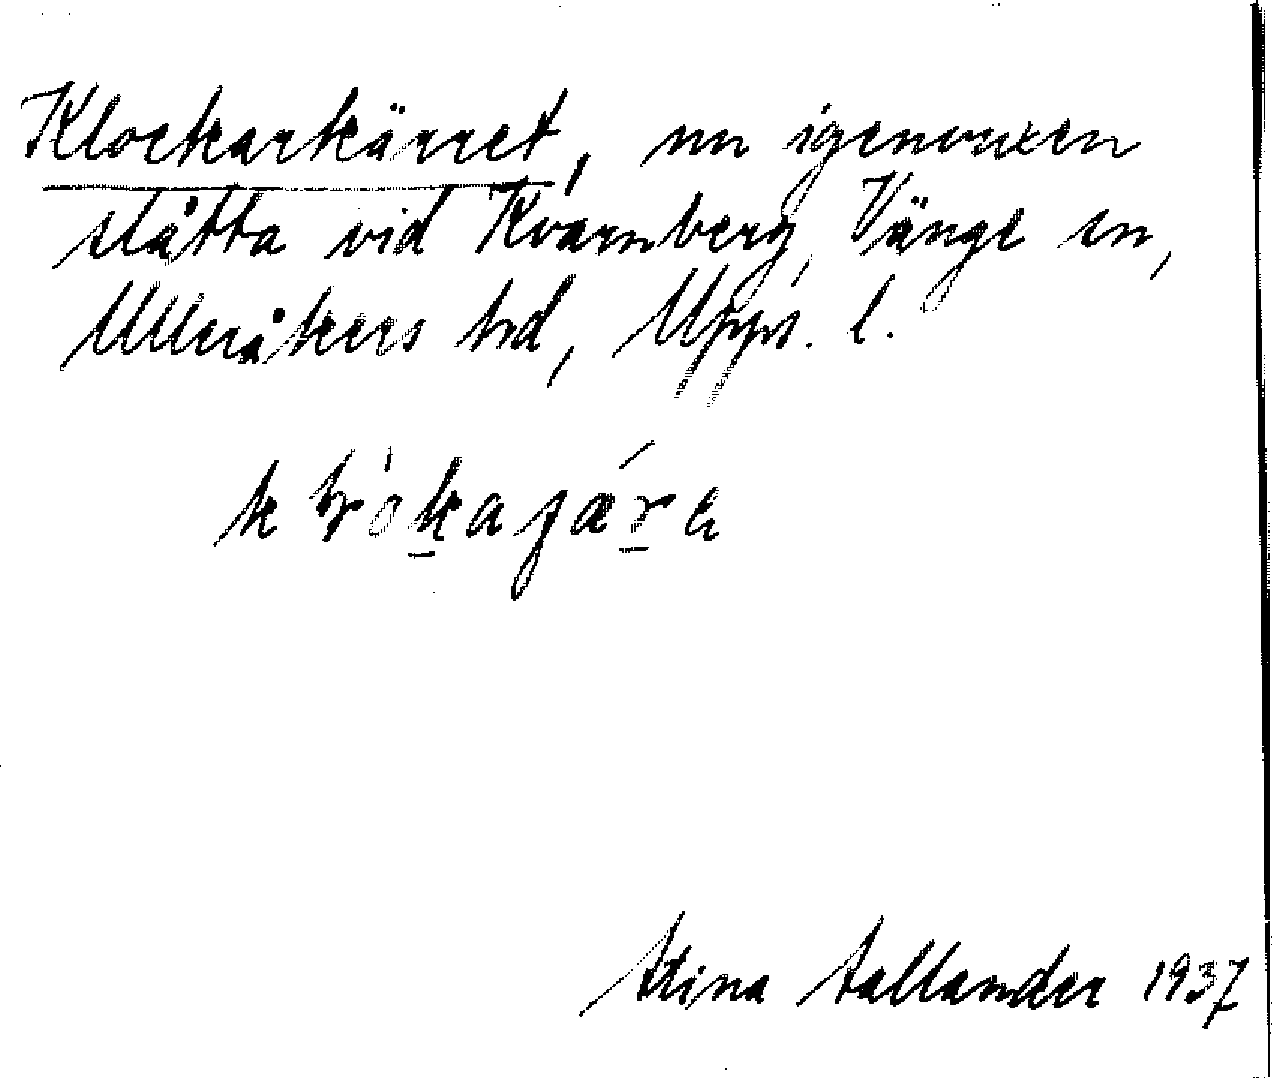 Klockarkärret, nu igenvuxen
slåtta vid Kvarnberg, Vänge sn,
Ulleråkers hd, Upps. l.
Stina Sallander 1937